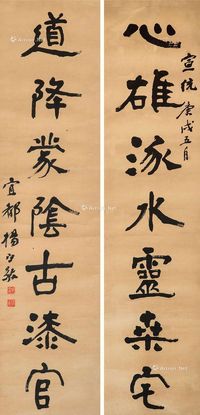 心雄涿水靈桑宅
宣統庚戌五月
道降蒙陰古漆官
宜都楊守敬